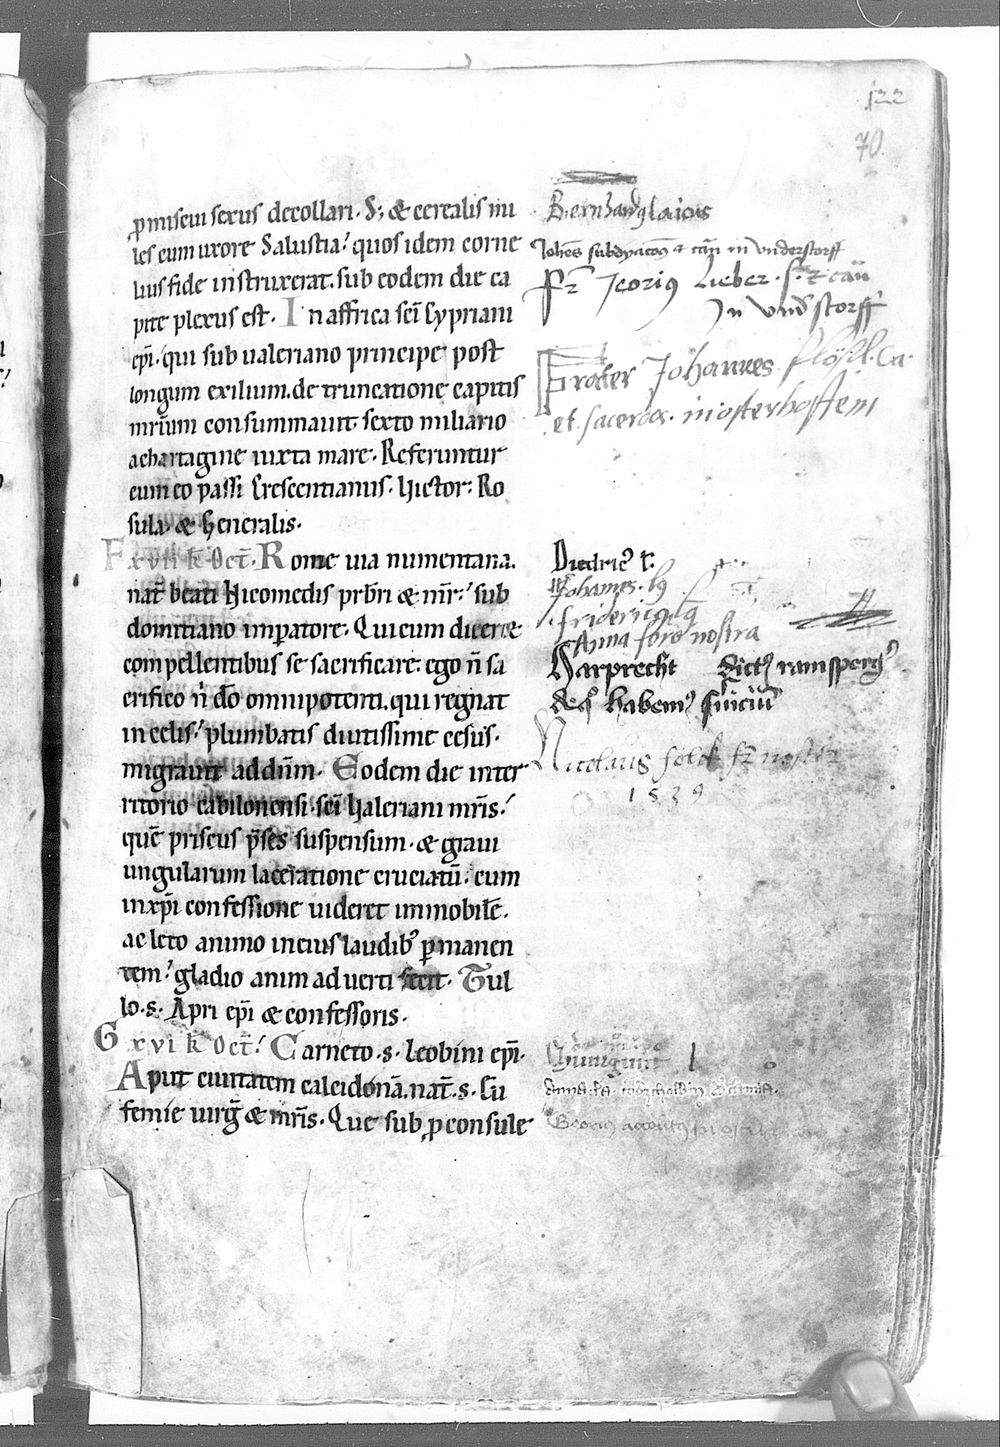 122
70.
p̱miscui sexus decollari. S; & cerealis mi
les cum uxore Salustia? quos idem corne
lius fide instruxerat. sub eodem die ca
pite plexus est. In affrica sc̄i Cypriani
ep̄i. qui sub ualeriano principe post
longum exilium. de truncatione capitis
mr̄ium consummauit sexto miliario
achartagine iuxta mare. Referuntur
cum eo passi Crescentianus. Uictor: Ro
sula. & Generalis.
F xvii k̄ Oct̄. Rome uia numentana.
nat̄ beati Nicomedis prb̄ri & mr̄: sub
domitiano imp̱atore. Qui cum diceret
compellentibus se sacrificare: ego n̄ sa
crifico n̄ dō omnipotenti. qui regnat
in celis? plumbatis diutissime cesus.
migrauit ad dn̄m. Eodem die inter
ritorio cabilonensi. sc̄i Ualeriani mr̄is?
quē priscus p̄ses suspensum. & graui
ungularum laceratione cruciatū: cum
in xp̄i confessione uideret immobilē.
ac leto animo in eius laudib; p̱manen
tem? gladio animaduerti fecit. Tul
lo. s. Apri ep̄i & confessoris.
G xvi k̄ Oct̄? Carneto. s. Leobini ep̄i.
Aput ciuitatem calcidonā. nat̄. s. Eu
femie uirḡ & mr̄is. Que sub p̱consule
Bernhardꝯ laicus
Joh̄es subdyacon9 & can̄ in vnderstorff
Fr̄ Jeorius Lieber. s. & can̄
Jn vnd̄storff
Frater Johannes
et sacerdos. in osterhoffem
Diedric9 l.
Johannes. ly
fridericus
Anna soror nostra
Harprecht dict9 ramsperg9
de q̄ habem9 s̄uiciū
Nicolaus fr̄ noster
1539